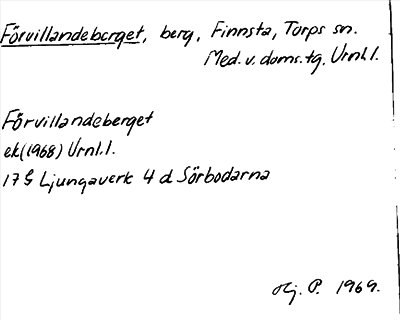 Förvillandeberget, berg, Finnsta, Torps sn.
Med. v. doms. tg, Urnl. l.
Förvillandeberget
ek (1968) Urnl. l.
17 G Ljungaverk 4 d Sörbodarna
Hj. P. 1969.